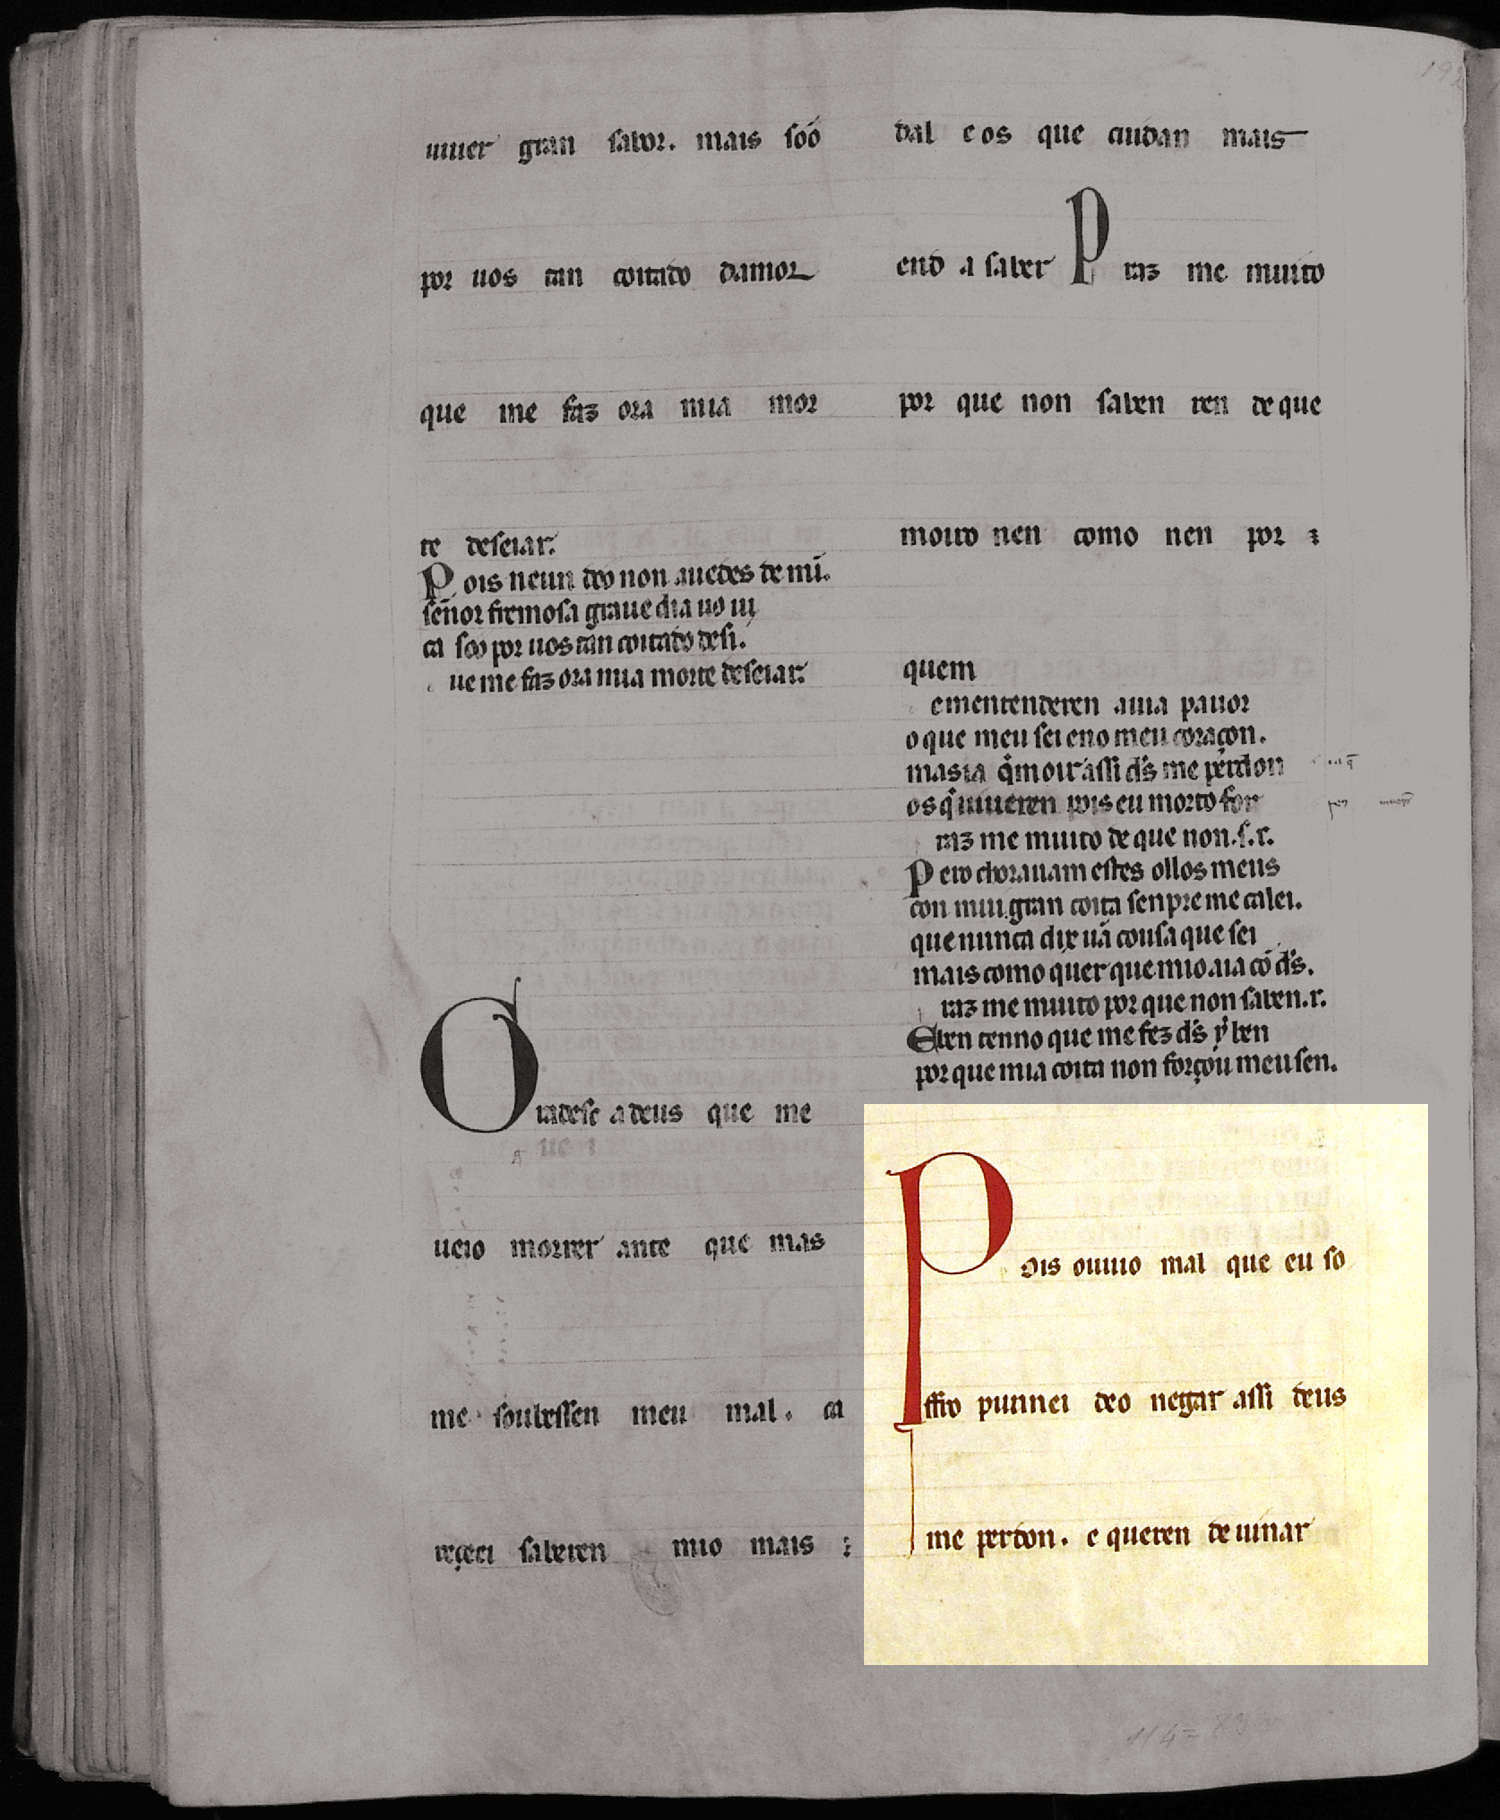 uiuer gran sabor. mais soo
por uos tan coitado damor
que me faz ora mia mor
te deseiar.
Pois neun deo non auedes de mi.
señor fremosa graue dia uo ui
ca soo por uos tan coitado desi.
ue me faz ora mia morte deseiar.
Gradesc a deus que me
ueio morrer ante que mas
me soubessen meu mal. ca
reçeei saberen mio mais :
dal e os que cuidan mais
end a saber Praz me muito
por que non saben ren de que
moiro nen como nen por :
quem
e mentenderen auia pauor
o que meu sei eno meu coraçon.
mas ia q̃ moir assi d̃s me perdon
os q̃ uiueren pois eu morto for
raz me muito de que non.s.r.
Pero chorauam estes ollos meus
con mui gran coita senpre me calei.
que nunca dix uã cousa que sei
mais como quer que mio aia cõ d̃s.
raz me muito por que non saben.r.
E ben tenno que me fez d̃s y ben
por que mia coita non forçou meu sen.
Pois ouuo mal que eu so
ffro punnei deo negar assi deus
me perdon. e queren deuinar